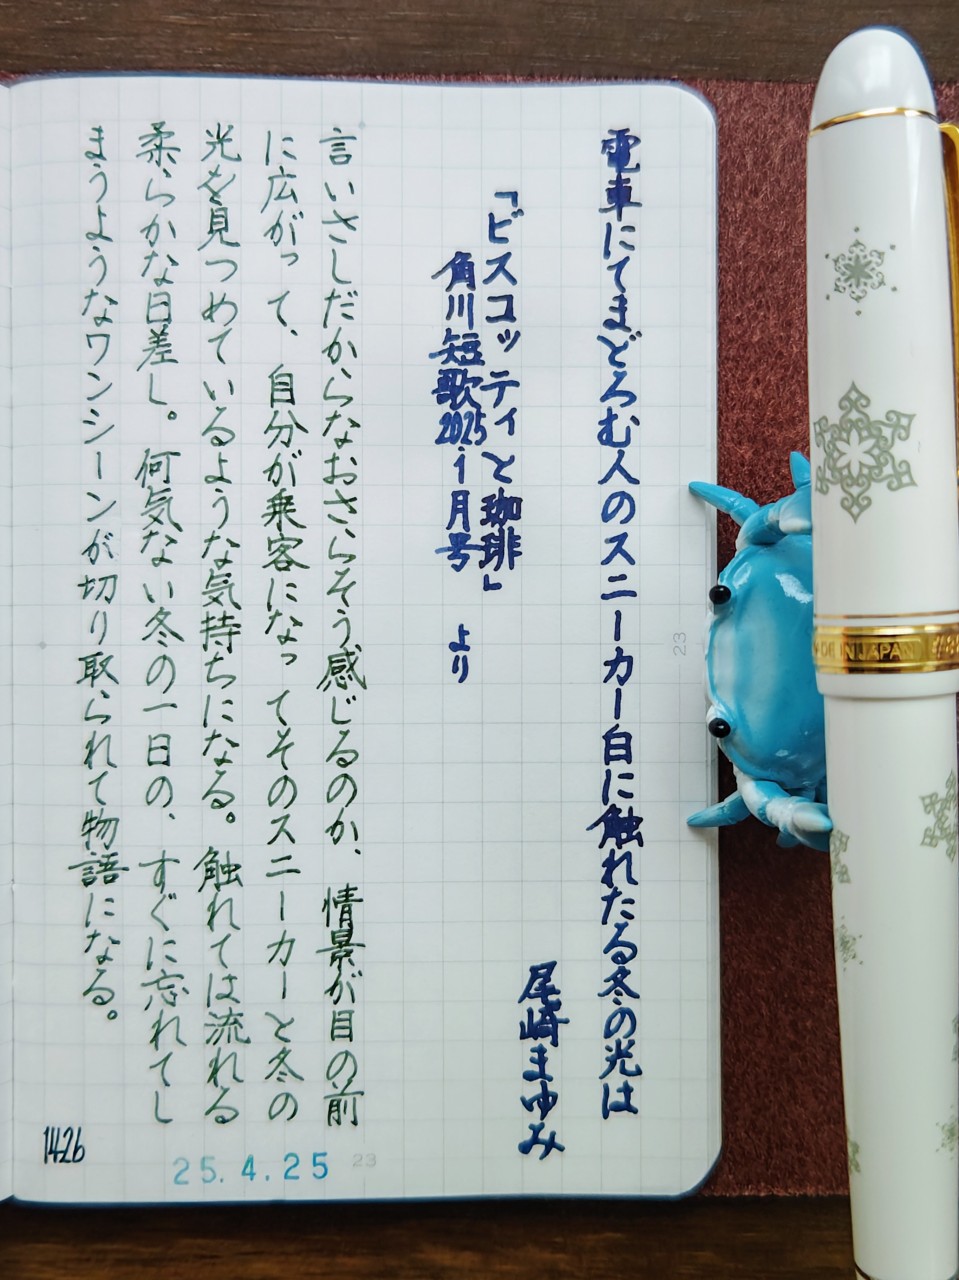 電車にてまどろむ人のスニーカー白に触れたる冬の光は
尾崎まゆみ
「ビスコッティと珈琲」
角川短歌2025.1月号 より
言いさしだからなおさらそう感じるのか、情景が目の前
に広がって、自分が乗客になってそのスニーカーと冬の
光を見つめているような気持ちになる。触れては流れる
柔らかな日差し。何気ない冬の一日の、すぐに忘れてし
まうようなワンシーンが切り取られて物語になる。
1426
25.4.25
23
23
DE IN JAPAN